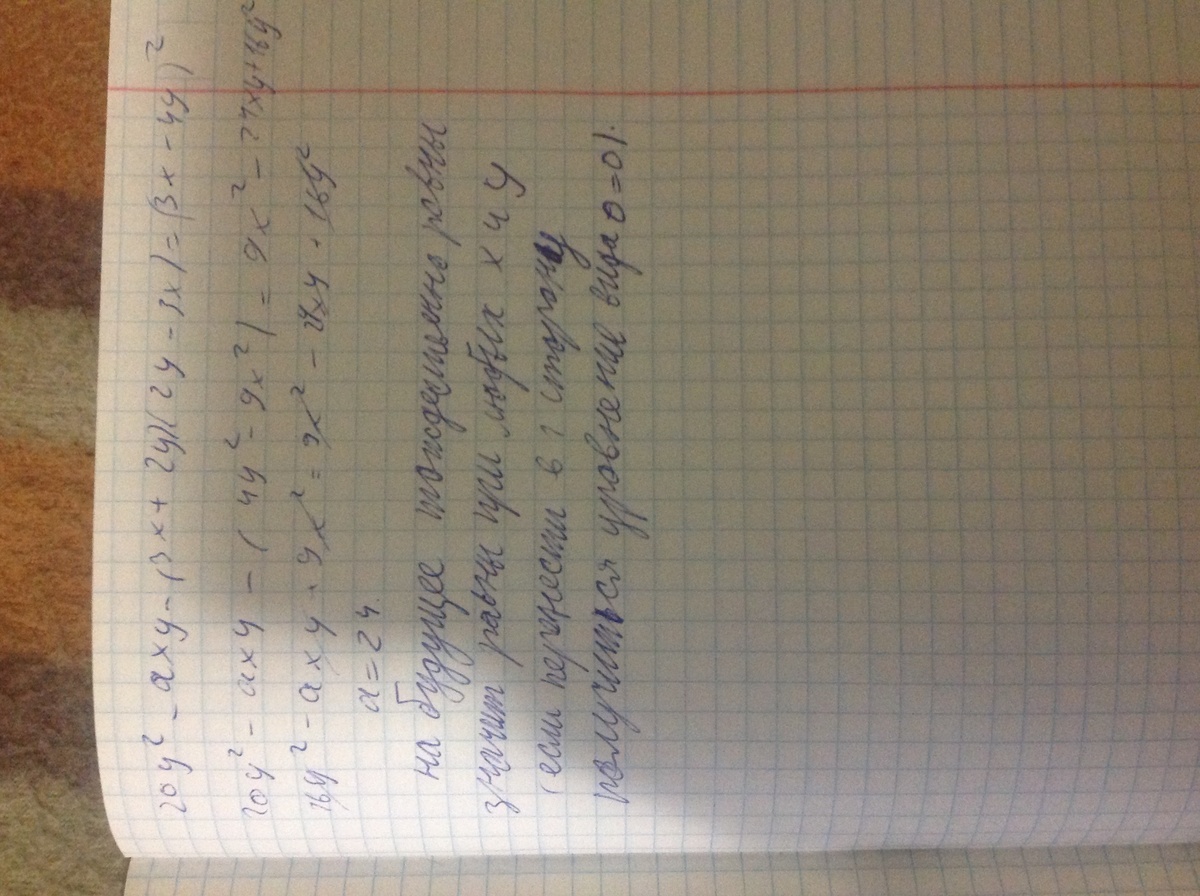 20y² - axy - (3x + 2y)(2y - 3x) = (3x - 4y)²
20y² - axy - (4y² - 9x²) = 9x² - 24xy + 16y²
16y² - axy + 9x² = 9x² - 24xy + 16y²
a = 24.
на будущее тождественно равны
значит равны при любых x и y
(если перенести в 1 сторону
получиться уровнение вида 0=0).